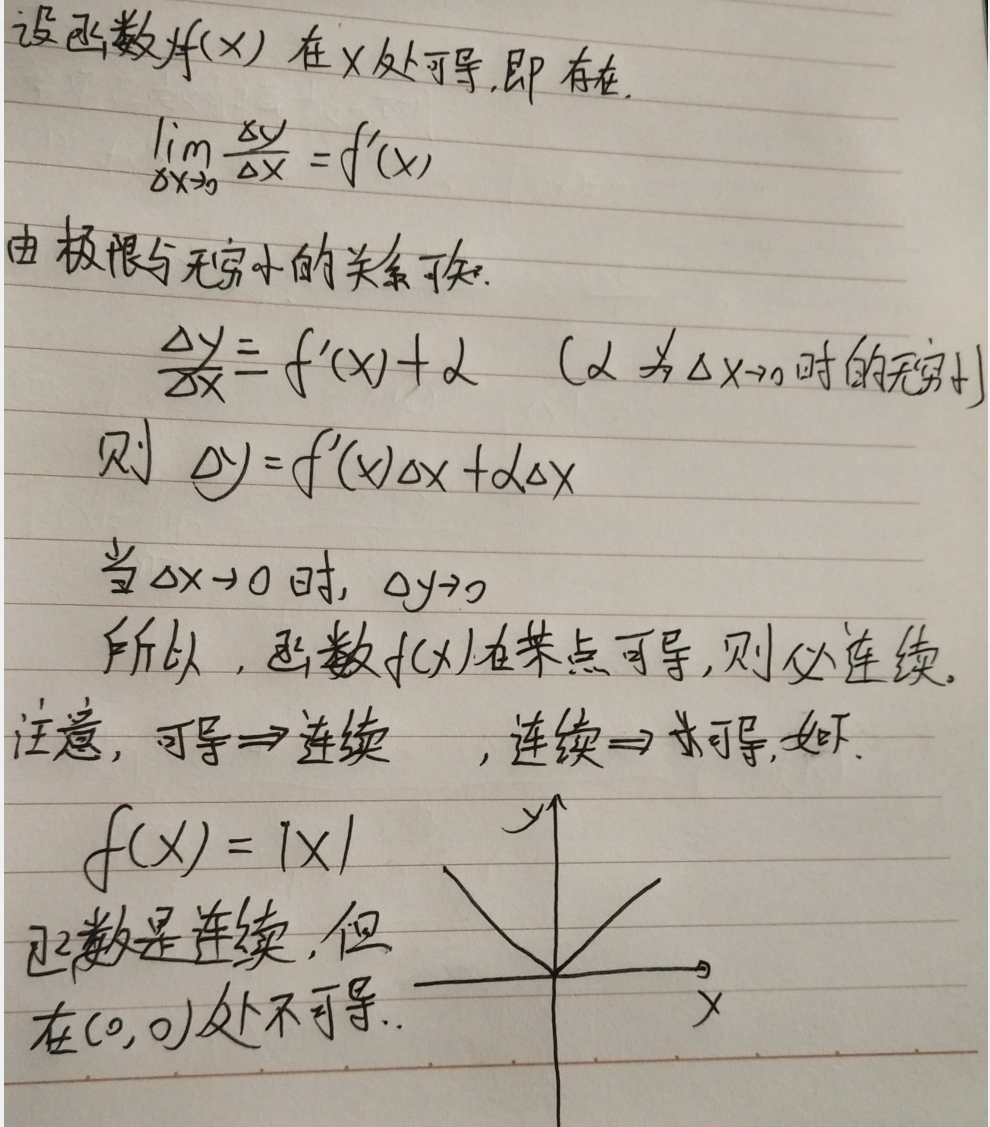 设函数f(x) 在x处可导,即 存在.
lim Δx→0 Δy/Δx = f'(x)
由极限与无穷小的关系可知.
Δy/Δx = f'(x)+α (α为Δx→0时的无穷小)
则 Δy=f'(x)Δx+αΔx
当Δx→0时, Δy→0
所以,函数f(x)在某点可导,则必连续.
注意,可导⇒连续 ,连续⇒ 可导,如下.
f(x)=|x|
y
函数是连续,但
x
在(0,0)处不可导..